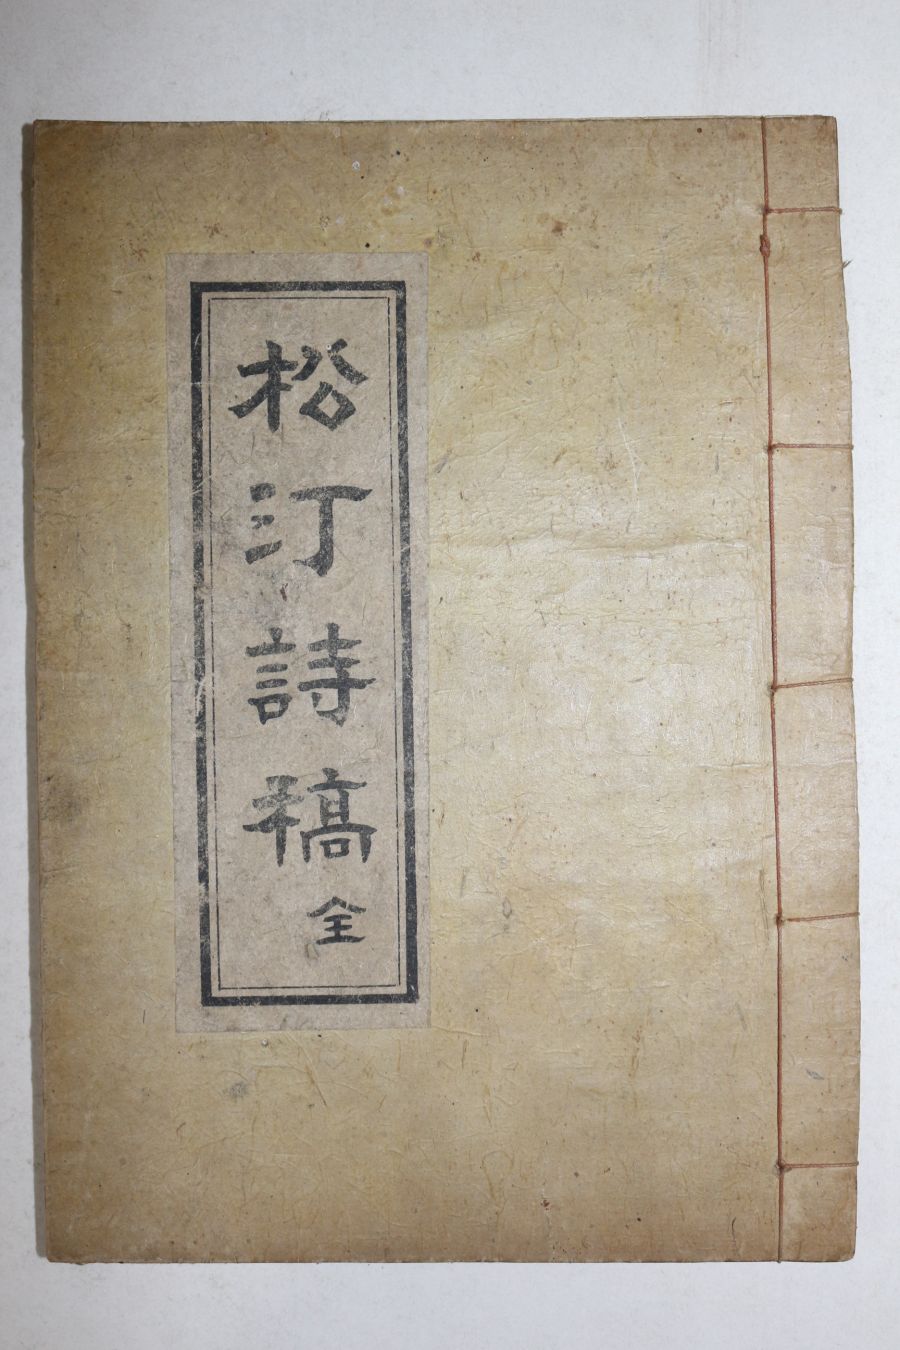 松汀詩稿 全